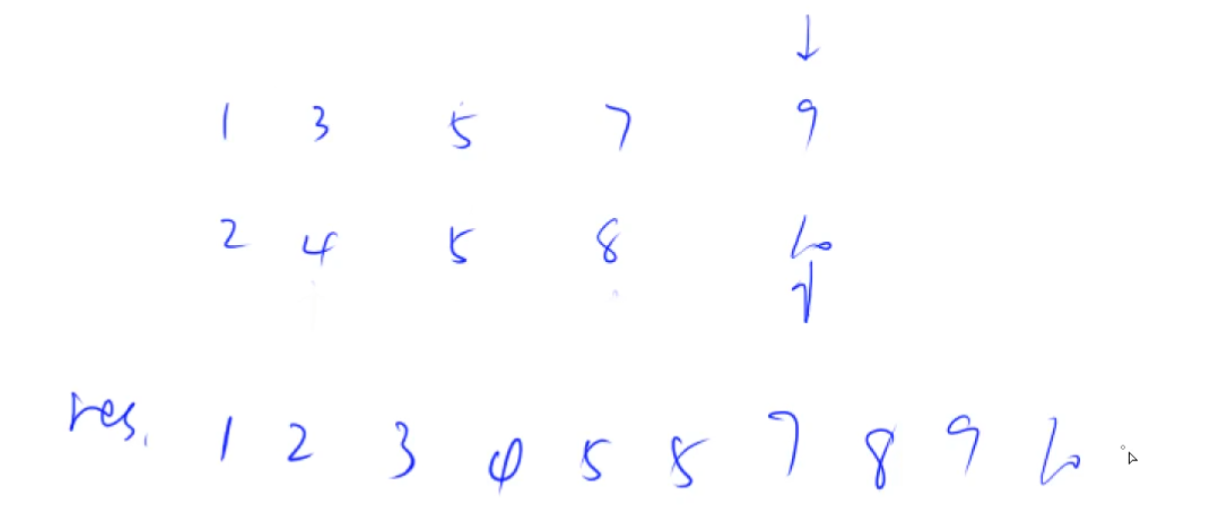 1 3 5 7 9
2 4 5 8 10
res. 1 2 3 4 5 5 7 8 9 10